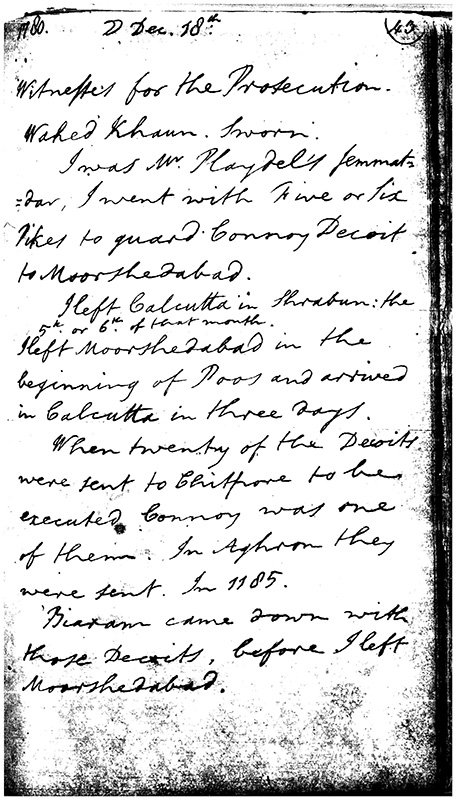 1780. D. Dec. 18th 43
Witnesses for the Prosecution.
Waked Khaun. Sworn.
I was Mr. Playdel's Jemmat-
=dar, I went with Five or Six
Pikes to guard Connoy Decoit
to Moorshedabad.
I left Calcutta in Shrabun: the
5th. or 6th. of that month.
I left Moorshedabad in the
beginning of Poos and arrived
in Calcutta in three days.
When twenty of the Decoits
were sent to Chitpore to be
executed Connoy was one
of them. In Aghron they
were sent. In 1185.
Biaram came down with
those Decoits, before I left
Moorshedabad.